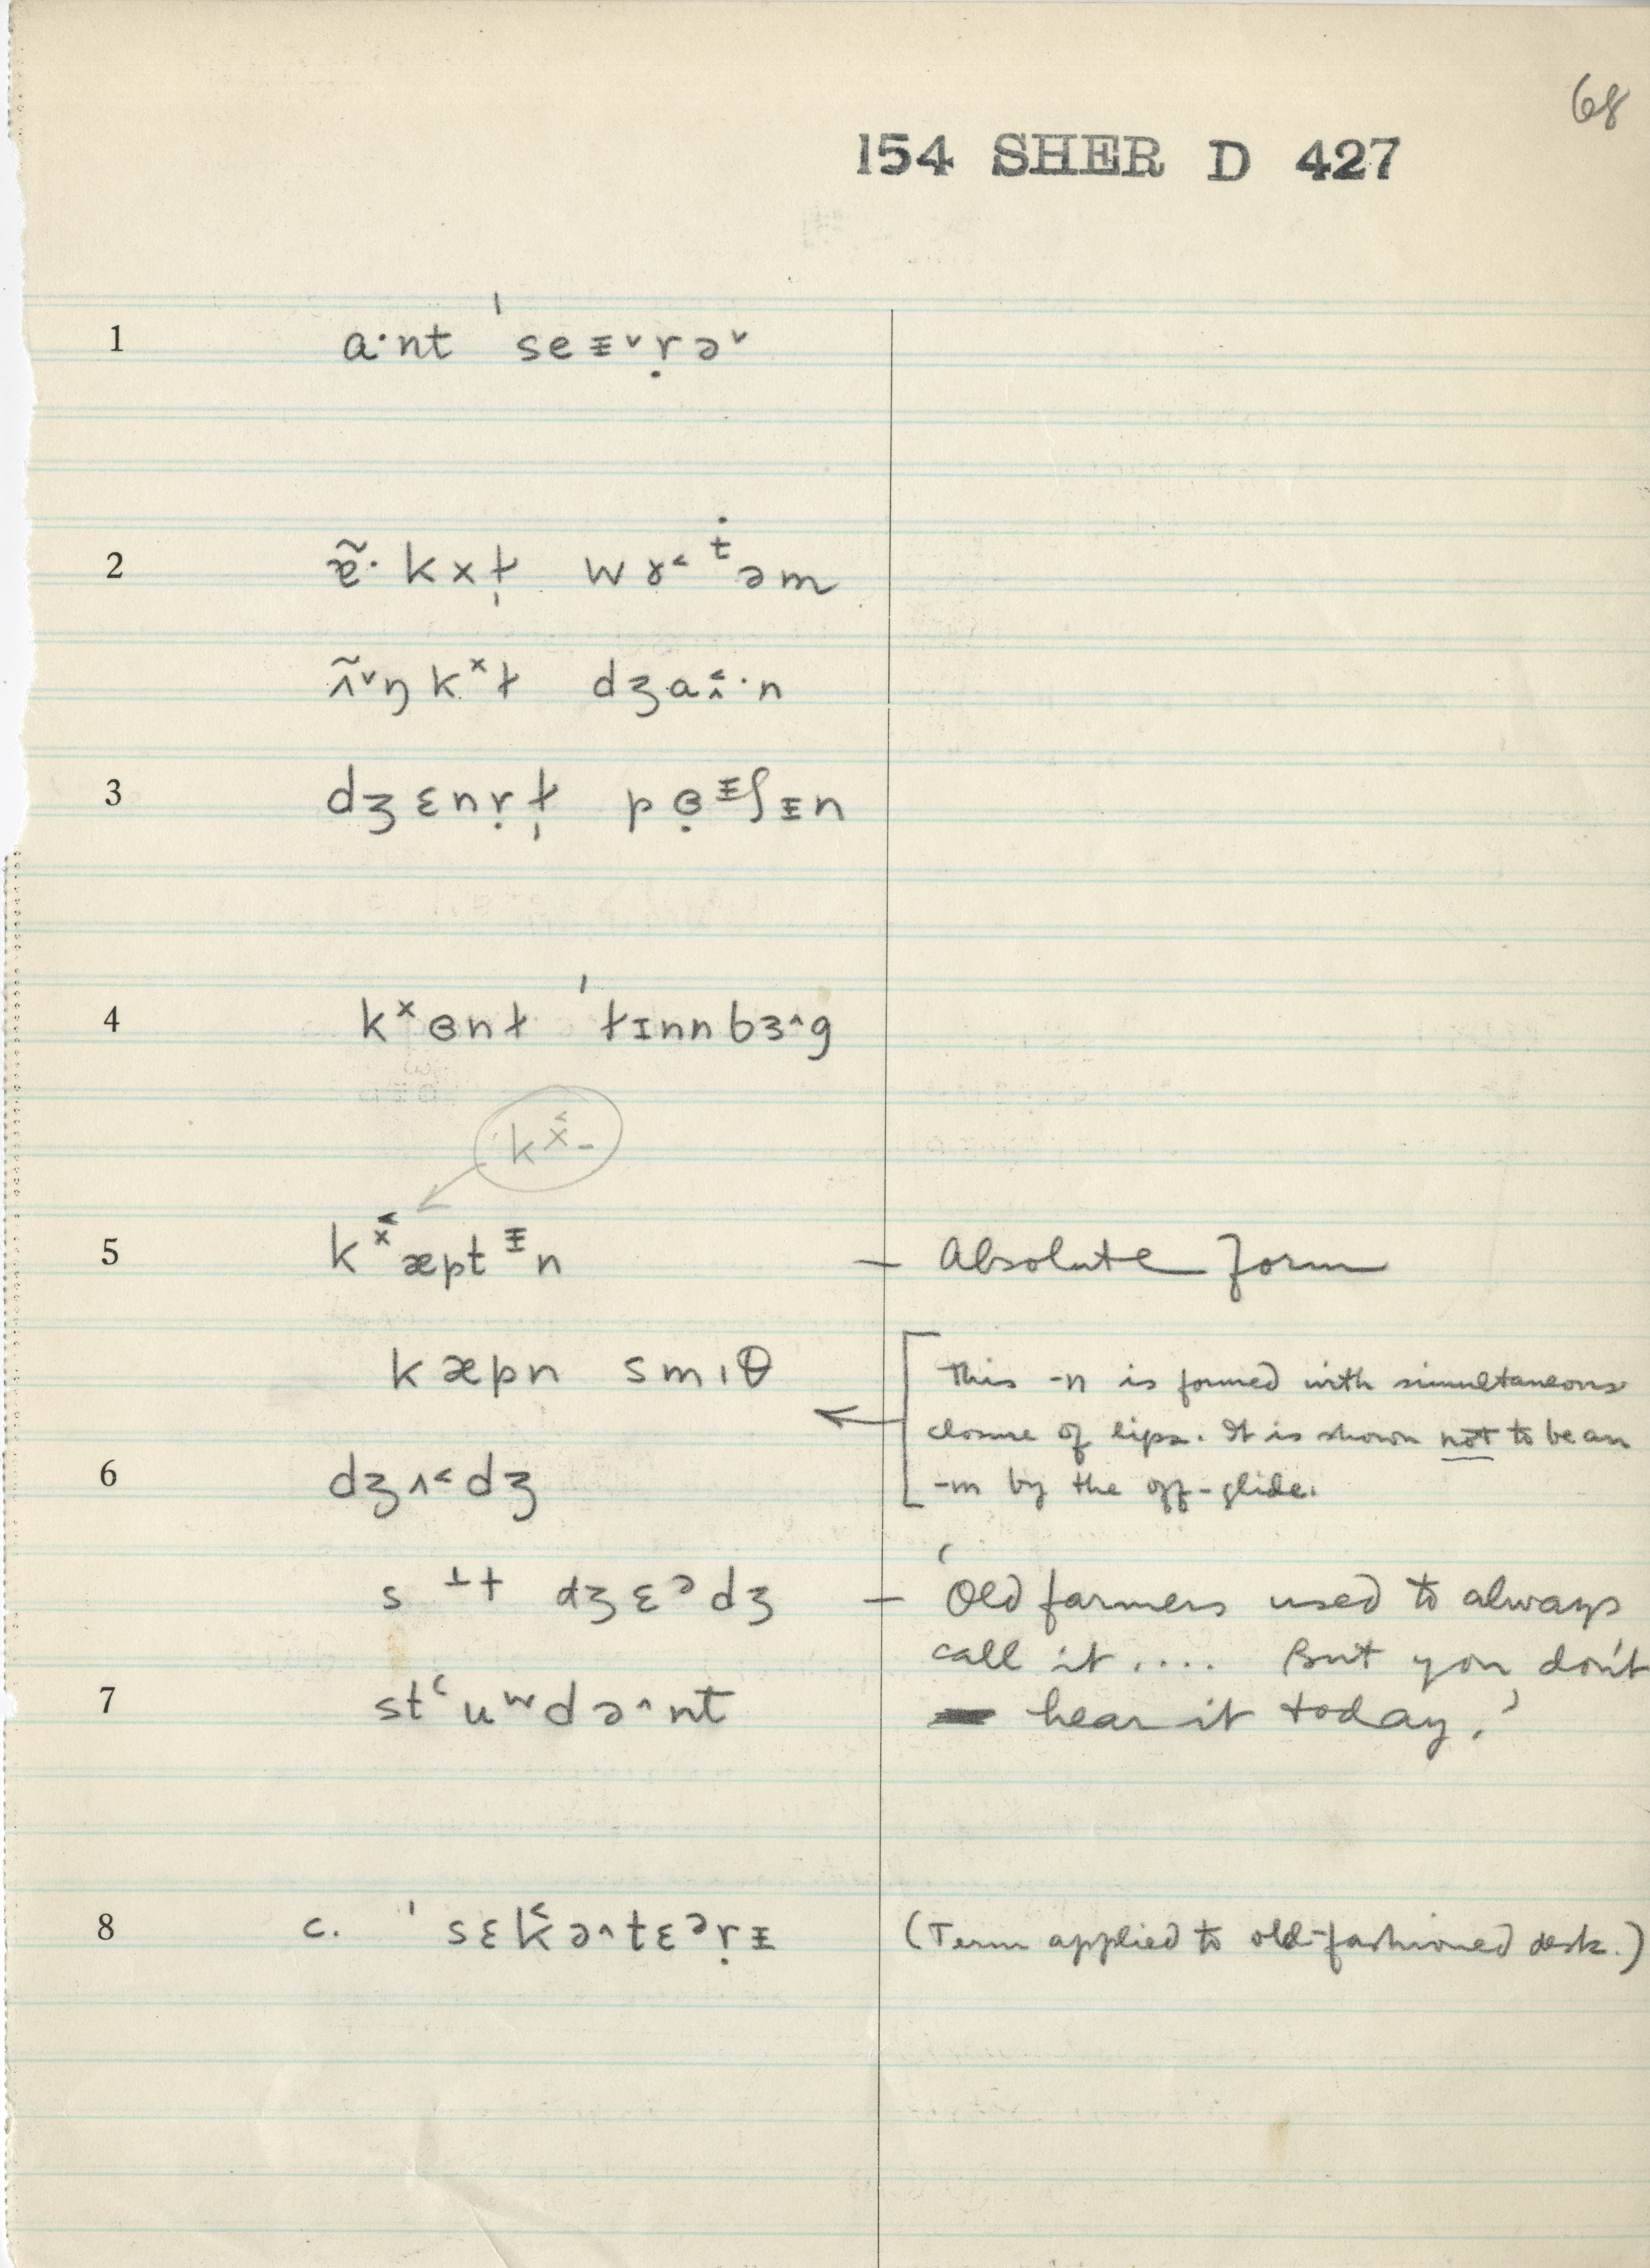 68
154 SHER D 427
1 a·nt ˈseᵻ˅ṛə˅
2
dʒa
3 dʒɛnṛɫ
4 kˣɵnt ˈɫɪnnbɜ^g
kˣ̑-
5 kˣæptᵻn – Absolute form
kæpn smɪθ
This -n is formed with simultaneous
closure of lips. It is shown not to be an
-m by the off-glide.
6 dʒʌ˂dʒ
s dʒɛᵊdʒ – 'Old farmers used to always
call it.... But you don't
hear it today.'
7 stʿuʷdə^nt
8 c. ˈsɛk̑ə^tɛᵊṛᵻ (Term applied to old-fashioned desk.)